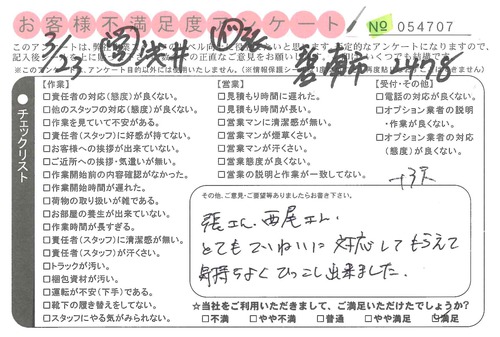 お客様不満足度アンケート
№ 054707
3/23
2478
チェックリスト
【作業】
□責任者の対応(態度)が良くない。
□他のスタッフの対応(態度)が良くない。
□作業を見ていて不安がある。
□責任者(スタッフ)に好感が持てない。
□お客様への挨拶が出来ていない。
□ご近所への挨拶・気遣いが無い。
□作業開始前の内容確認がなかった。
□作業開始時間が遅れた。
□荷物の取り扱いが雑である。
□お部屋の養生が出来ていない。
□作業時間が長すぎる。
□責任者(スタッフ)に清潔感が無い。
□責任者(スタッフ)が汗くさい。
□トラックが汚い。
□梱包資材が汚い。
□運転が不安(下手)である。
□靴下の履き替えをしてない。
□スタッフにやる気がみられない。
【営業】
□見積もり時間に遅れた。
□見積もり時間が長い。
□営業マンに清潔感が無い。
□営業マンが煙草くさい。
□営業マンが汗くさい。
□営業態度が良くない。
□営業の説明と作業が一致してない。
【受付・その他】
□電話の対応が良くない。
□オプション業者の説明
・作業が良くない。
□オプション業者の対応
(態度)が良くない。
その他、ご意見・ご要望等ありましたらお書き下さい。
張さん、西尾さん、
とてもていねいに対応してもらえて
気持ちよくひっこし出来ました。
☆当社をご利用いただきまして、ご満足いただけたでしょうか?
□不満 □やや不満 □普通 □やや満足 ☑満足